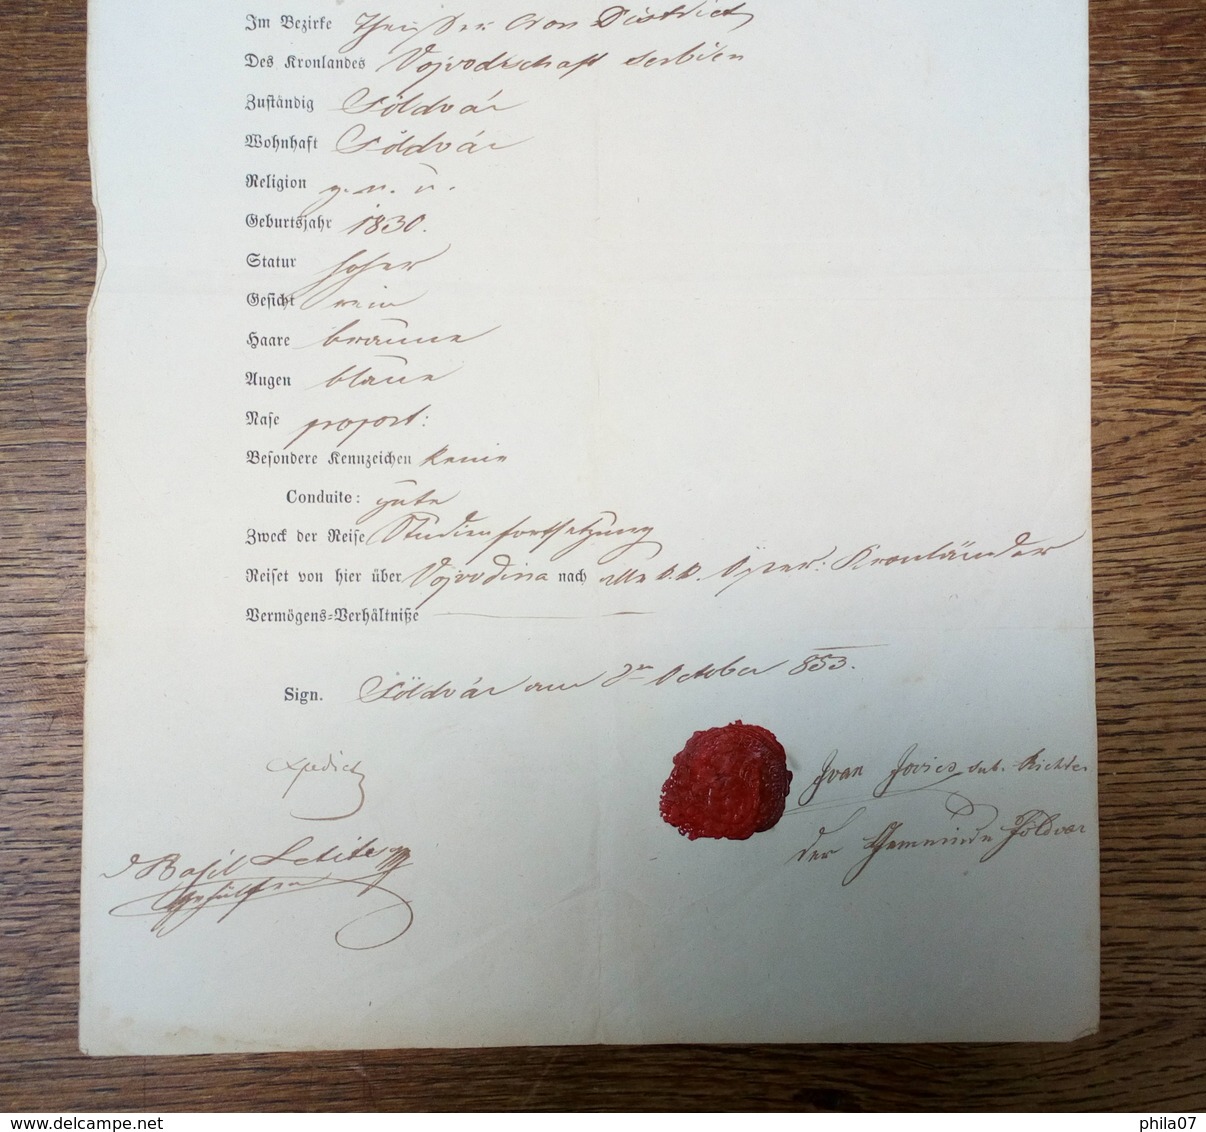 Im Bezirke Theisser Cron District
Des Kronlandes Vojvodschaft Serbien
Zuständig Földvár
Wohnhaft Földvár
Religion g. n. u.
Geburtsjahr 1830.
Statur hoher
Gesicht rein
Haare braune
Augen blaue
Nase proport:
Besondere Kennzeichen keine
Conduite: gute
Zweck der Reise Studienfortsetzung
Reiset von hier über Vojvodina nach alle k. k. Öster: Kronländer
Vermögens-Verhältniße
Sign. Földvár am October 853.
Expedict
Ivan Jovics sub. Richter
der Gemeinde Földvar
Basil
Gehülfen
www.delcampe.net
phila07